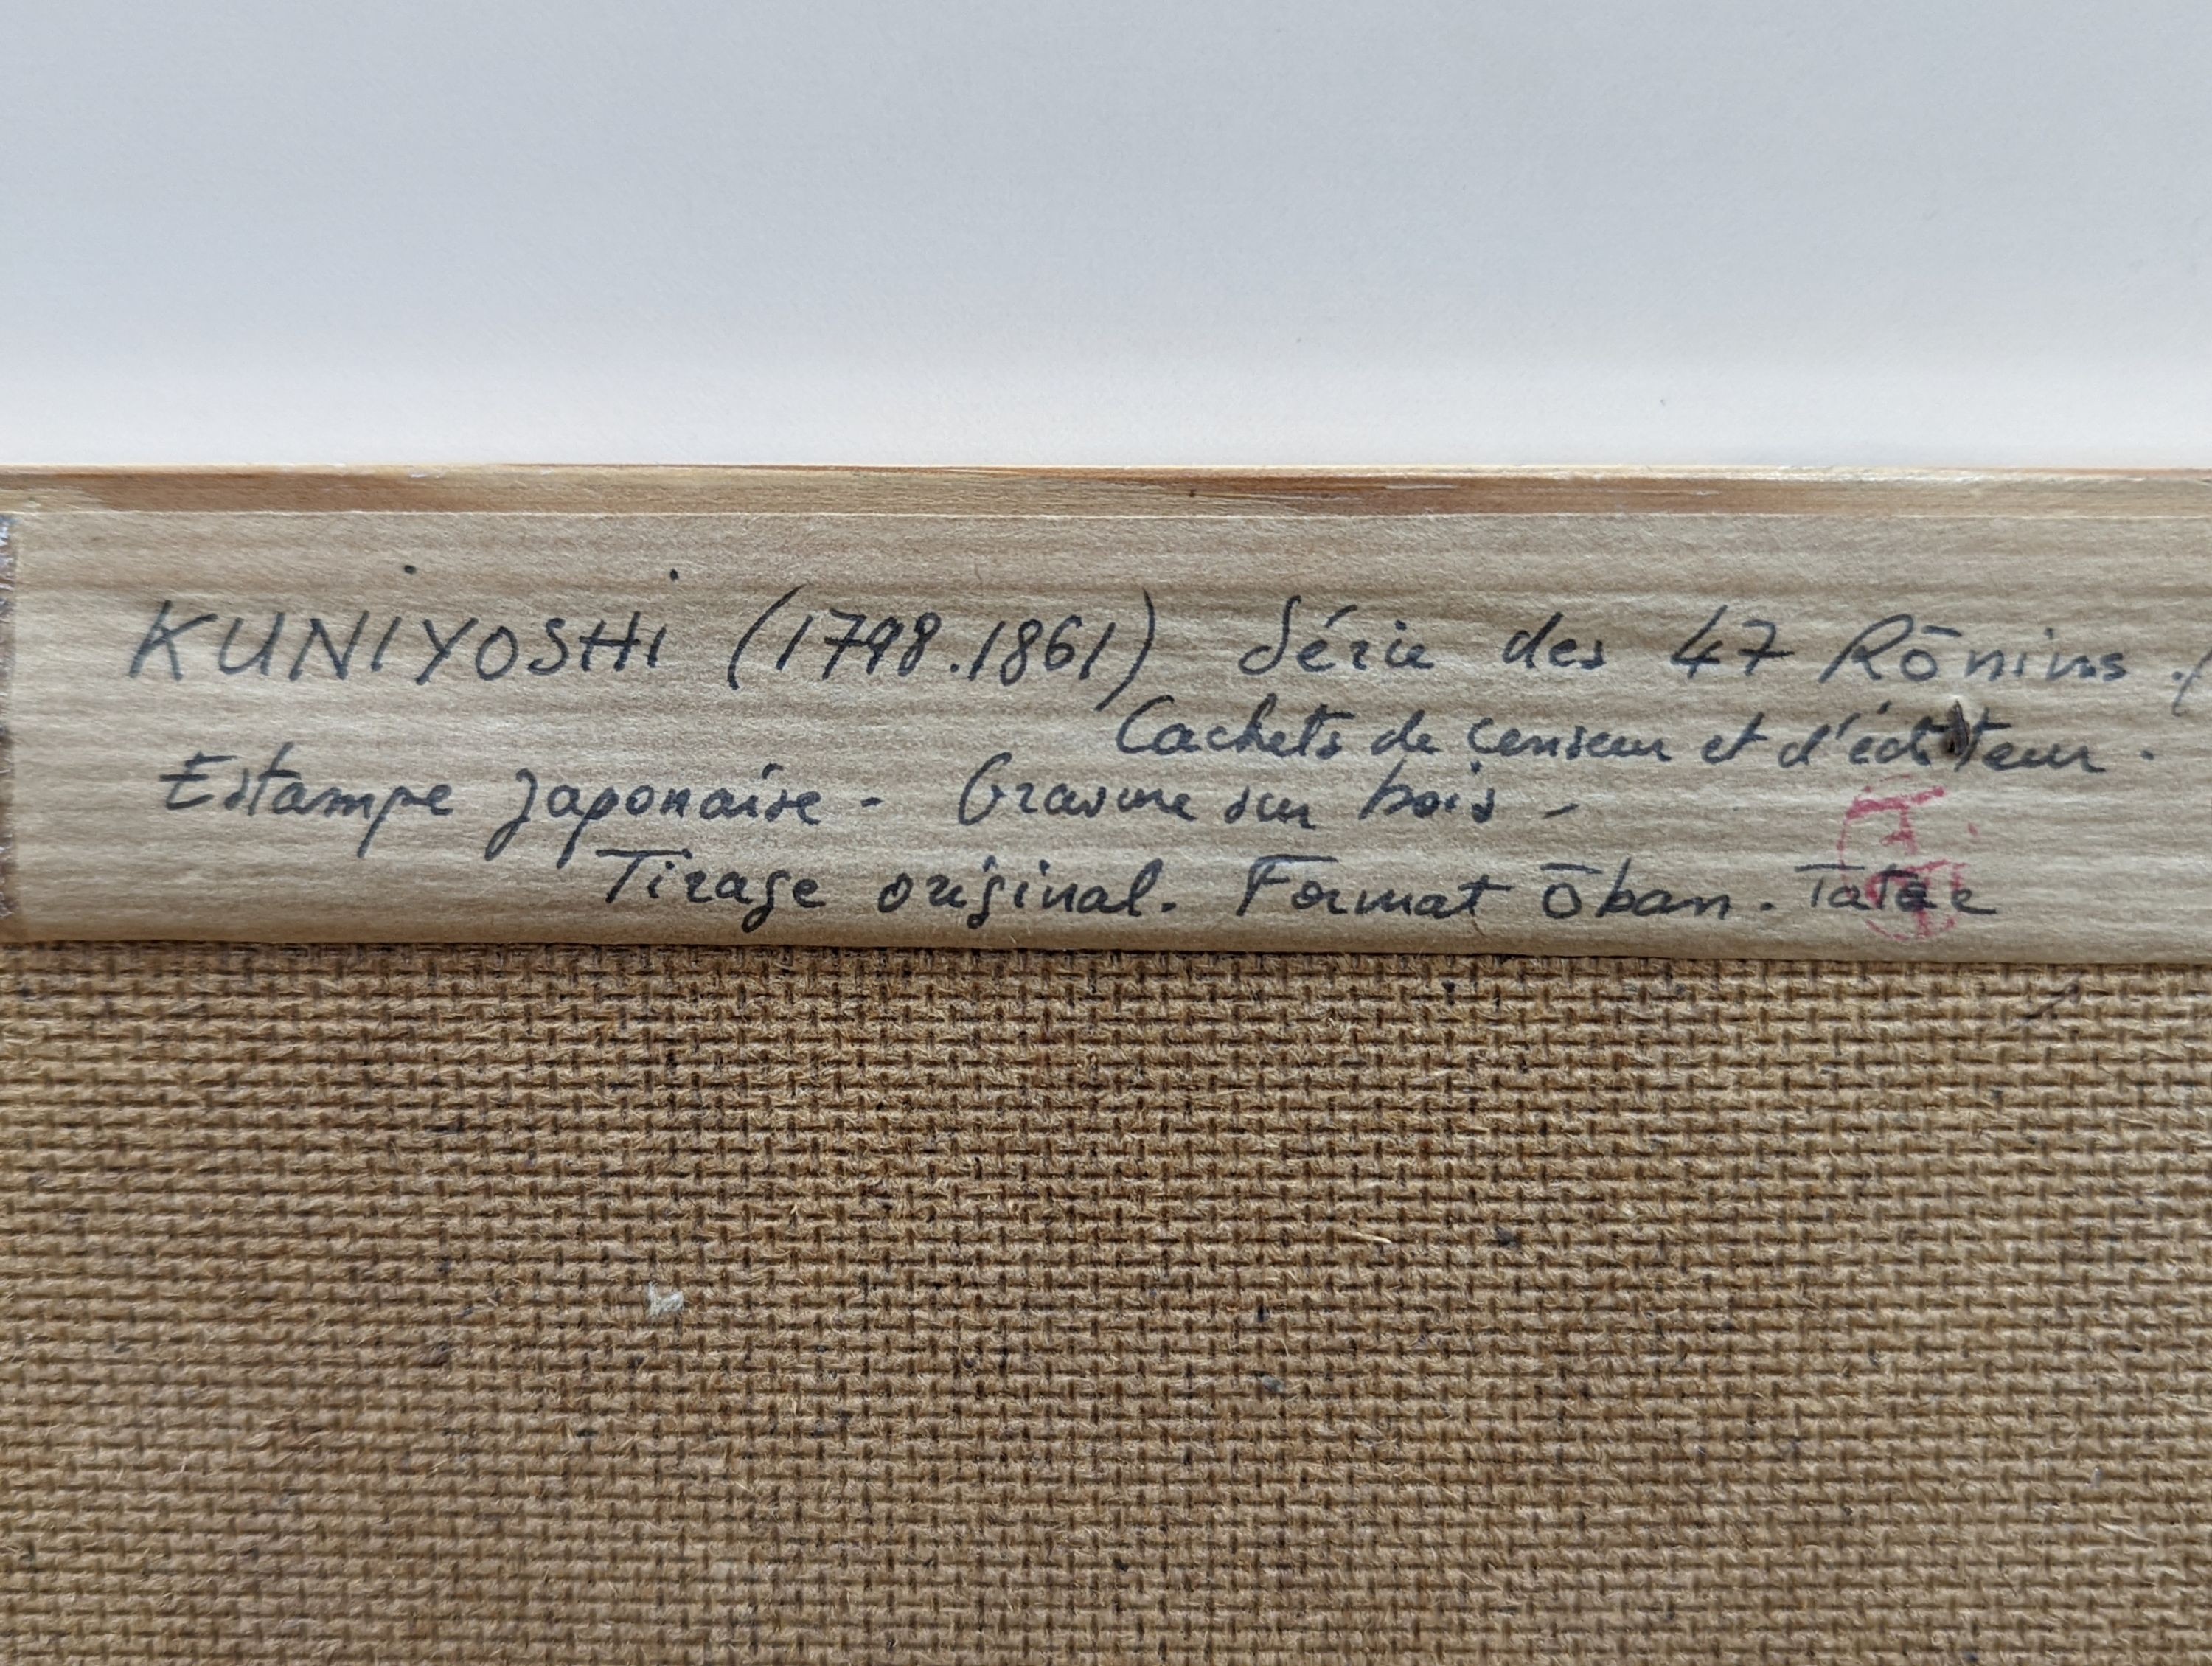 KUNIYOSHI (1798.1861) Série des 47 Rōnins. (
Cachets de censeur et d'éditeur.
Estampe japonaise - Gravure sur bois -
Tirage original. Format ōban. Tatee